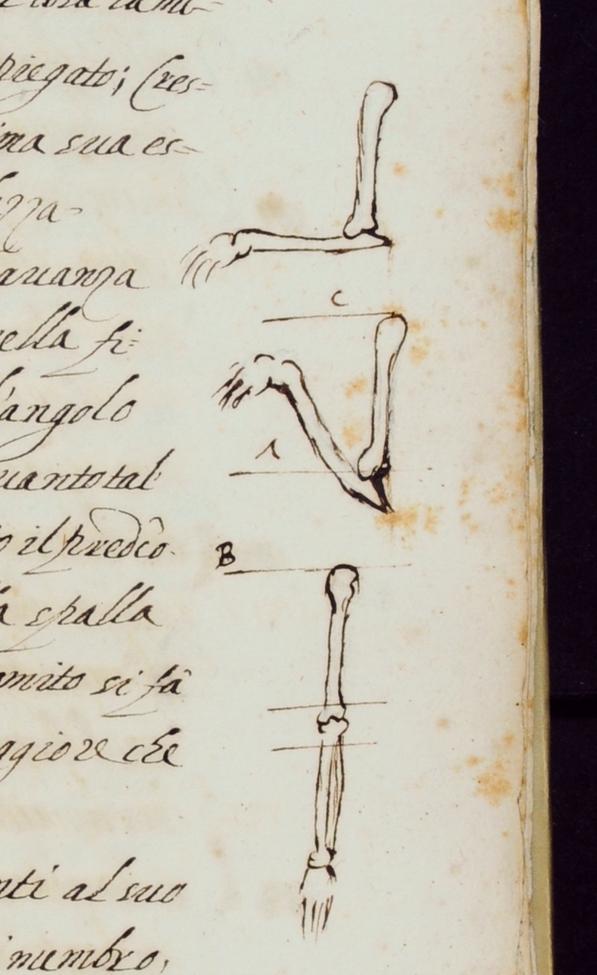 piegato; Cres=
ma sua es=
auanza
ella fi=
C
angolo
A
uantotal
o il predeõ
B
a spalla
omito si fà
ggiore che
nti al suo
membro,